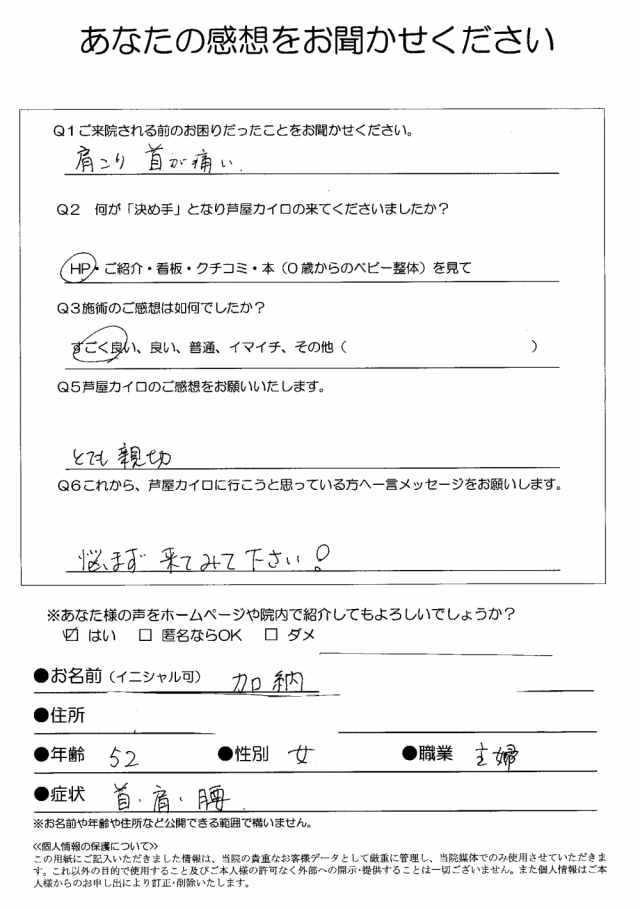 あなたの感想をお聞かせください
Q1ご来院される前のお困りだったことをお聞かせください。
肩こり 首が痛い.
Q2 何が「決め手」となり芦屋カイロの来てくださいましたか?
HP・ご紹介・看板・クチコミ・本(0歳からのベビー整体)を見て
Q3施術のご感想は如何でしたか?
すごく良い、良い、普通、イマイチ、その他( )
Q5芦屋カイロのご感想をお願いいたします。
とても親切
Q6これから、芦屋カイロに行こうと思っている方へ一言メッセージをお願いします。
悩まず 来てみて下さい!
※あなた様の声をホームページや院内で紹介してもよろしいでしょうか?
☑ はい □ 匿名ならOK □ ダメ
●お名前(イニシャル可) 加納
●住所
●年齢 52 ●性別 女 ●職業 主婦
●症状 首・肩・腰.
※お名前や年齢や住所など公開できる範囲で構いません。
≪個人情報の保護について≫
この用紙にご記入いただきました情報は、当院の貴重なお客様データとして厳重に管理し、当院媒体でのみ使用させていただきま
す。これ以外の目的で使用すること及びご本人様の許可なく外部への開示・提供することは一切ございません。また個人情報はご本
人様からのお申し出により訂正・削除いたします。